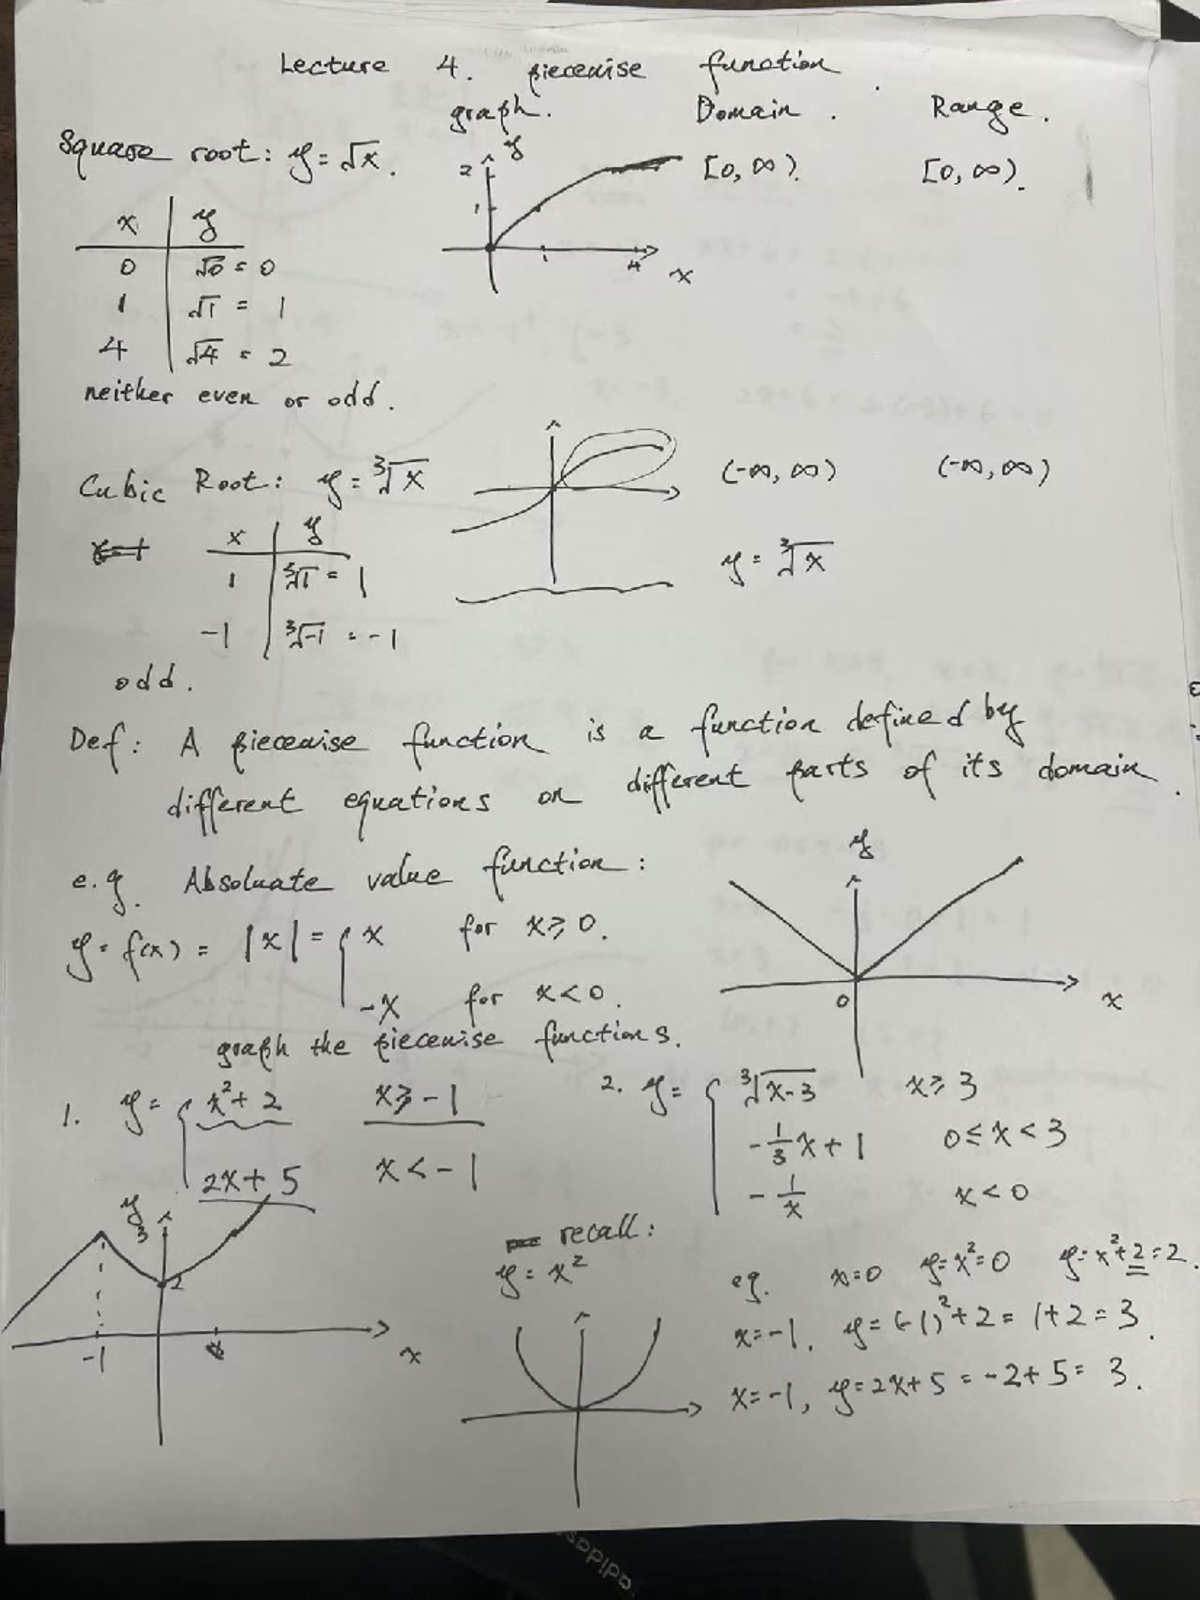 Lecture 4. piecewise function.
graph. Domain. Range.
Square root: y = √x. [0, ∞). [0, ∞).
y
2
1
1 4 x
x | y
0 | √0 = 0
1 | √1 = 1
4 | √4 = 2
neither even or odd.
Cubic Root: y = ∛x (-∞, ∞) (-∞, ∞)
x | y
1 | ∛1 = 1
y = ∛x
-1 | ∛-1 = -1
odd.
Def: A piecewise function is a function defined by
different equations on different parts of its domain.
e.g. Absoluate value function:
y = f(x) = |x| = { x for x ≥ 0.
-x for x < 0.
y
0 x
graph the piecewise functions.
1. y = { x² + 2 x ≥ -1
2x + 5 x < -1
2. y = { ∛x-3 x ≥ 3
-1/3 x + 1 0 ≤ x < 3
-1/x x < 0
y
3
2
-1 x
recall:
y = x²
eg. x=0 y=x²=0 y=x²+2=2.
x=-1. y=(-1)²+2=1+2=3.
x=-1, y=2x+5=-2+5=3.
adidas